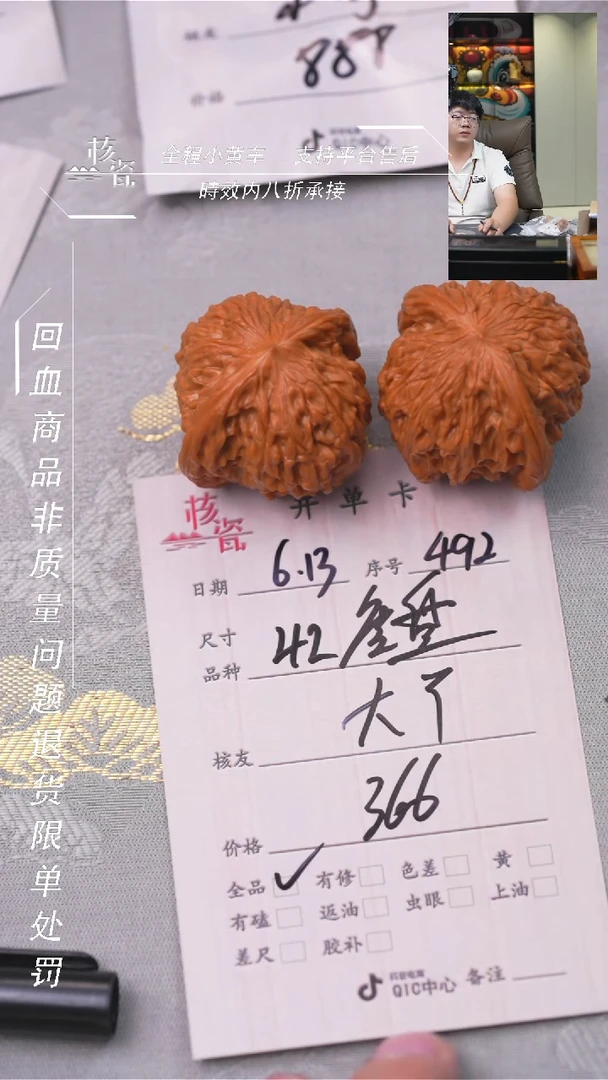 887
价格
核瓷
全程小黄车 支持平台售后
時效内八折承接
回血商品非质量问题退货限单处罚
核瓷
开单卡
日期 6.13 序号 492
尺寸
品种 42
核友 大了
价格 366
全品 ✓ 有修 色差 黄
有磕 返油 虫眼 上油
差尺 胶补
抖音电商
QIC中心 备注